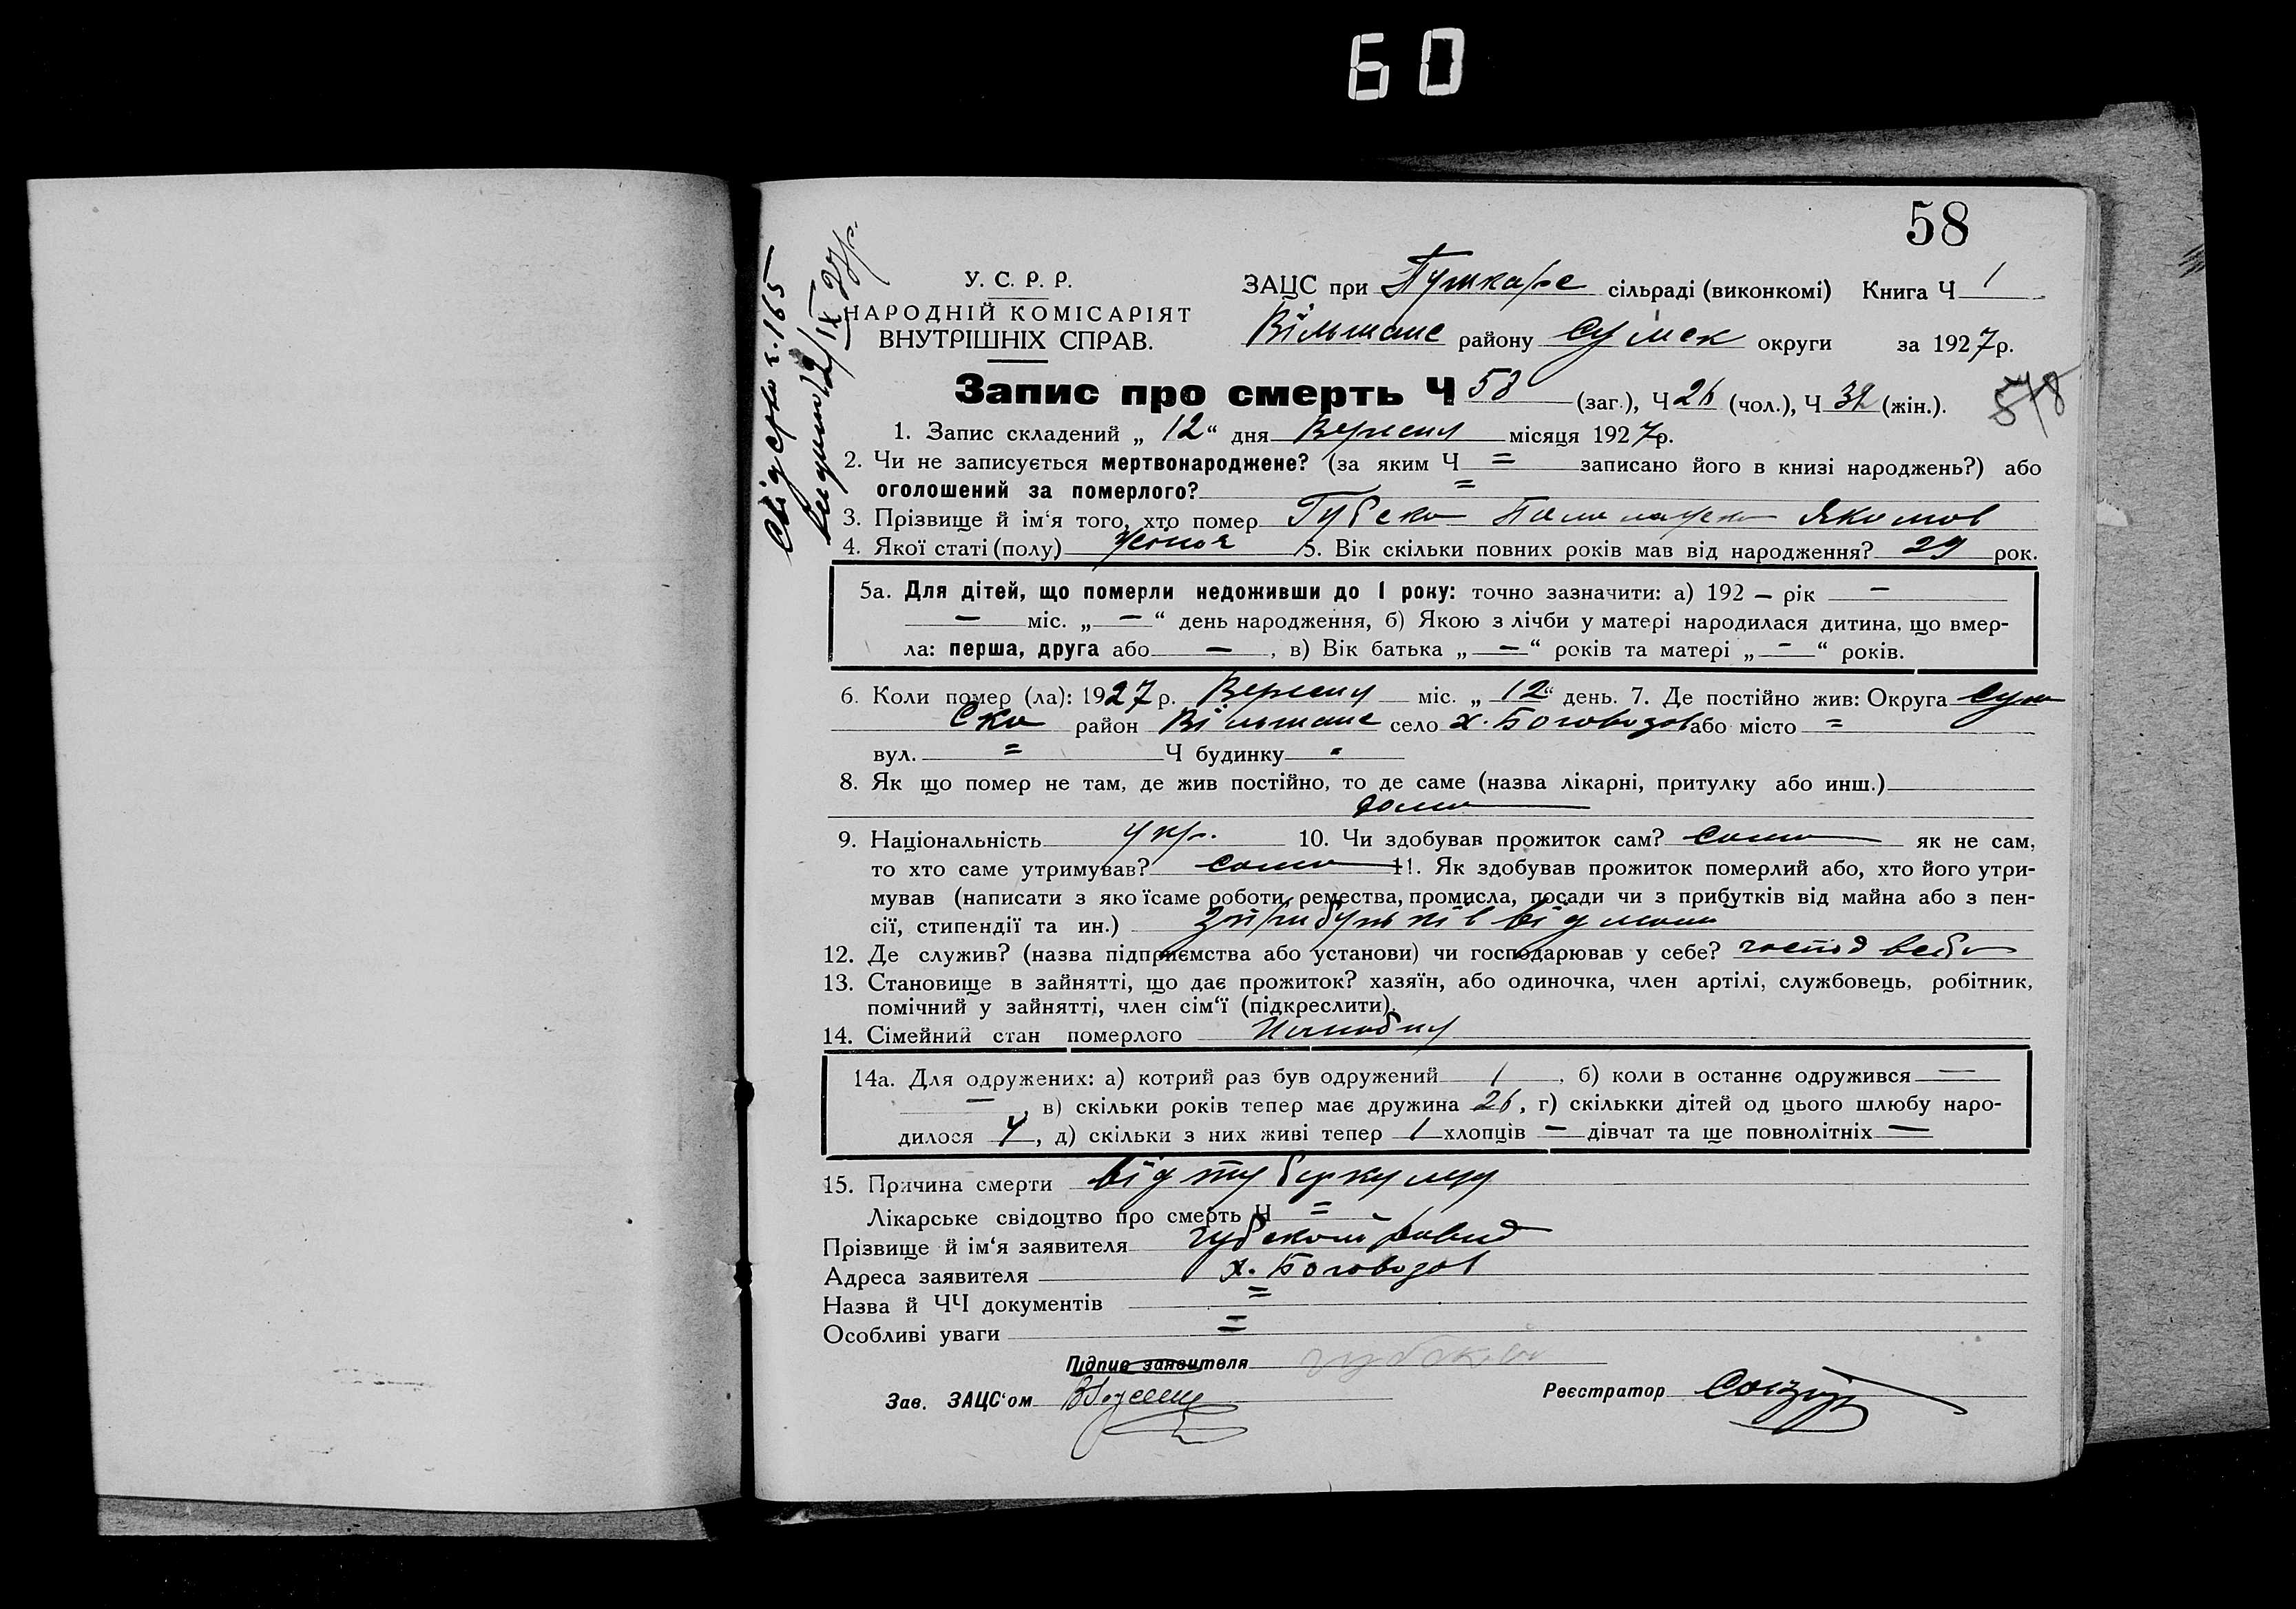 60
58
Свідсрт ч. 165
12/IX 27 р.
У. С. Р. Р.
НАРОДНІЙ КОМІСАРІЯТ
ВНУТРІШНІХ СПРАВ.
ЗАЦС при Пушкарс сільраді (виконкомі) Книга Ч 1
Вільшанс району Сумск округи за 1927 р.
Запис про смерть Ч 58 (заг.), Ч 26 (чол.), Ч 32 (жін.).
1. Запис складений „ 12 “ дня Вересня місяця 1927 р.
2. Чи не записується мертвонароджене? (за яким Ч = записано його в книзі народжень?) або
оголошений за померлого? =
3. Прізвище й ім‘я того, хто помер Губско Якимов
4. Якої статі (полу) жіноч 5. Вік скільки повних років мав від народження? 29 рок.
5а. Для дітей, що померли недоживши до 1 року: точно зазначити: а) 192 – рік –
– міс. „ – “ день народження, б) Якою з лічби у матері народилася дитина, що вмер-
ла: перша, друга або – , в) Вік батька „ – “ років та матері „ – “ років.
6. Коли помер (ла): 1927 р. Вересня міс. „ 12 “ день. 7. Де постійно жив: Округа Сум
ска район Вільшанс село х. Боговозов або місто =
вул. = Ч будинку "
8. Як що помер не там, де жив постійно, то де саме (назва лікарні, притулку або инш.)
дома
9. Національність укр. 10. Чи здобував прожиток сам? сама як не сам,
то хто саме утримував? сама 11. Як здобував прожиток померлий або, хто його утри-
мував (написати з якоїсаме роботи, ремества, промисла, посади чи з прибутків від майна або з пен-
сії, стипендії та ин.) з прибутків від майн
12. Де служив? (назва підприємства або установи) чи господарював у себе? господ всебе
13. Становище в зайнятті, що дає прожиток? хазяїн, або одиночка, член артілі, службовець, робітник,
помічний у зайнятті, член сім‘ї (підкреслити).
14. Сімейний стан померлого
14а. Для одружених: а) котрий раз був одружений 1 , б) коли в останнє одружився —
– , в) скільки років тепер має дружина 26 , г) скількки дітей од цього шлюбу наро-
дилося 4 , д) скільки з них живі тепер 1 хлопців – дівчат та ще повнолітніх —
15. Причина смерти від туберкульоз
Лікарське свідоцтво про смерть Ч =
Прізвище й ім‘я заявителя Губском Давид
Адреса заявителя х. Боговозов
Назва й ЧЧ документів =
Особливі уваги =
Підпис заявителя
Зав. ЗАЦС‘ом
Реєстратор